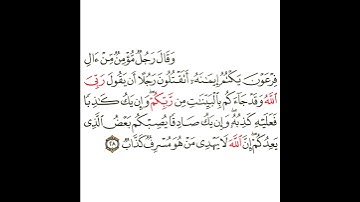 وَقَالَ رَجُلٌ مُّؤْمِنٌ مِّنْ ءَالِ
فِرْعَوْنَ يَكْتُمُ إِيمَٰنَهُۥٓ أَتَقْتُلُونَ رَجُلًا أَن يَقُولَ رَبِّىَ
ٱللَّهُ وَقَدْ جَآءَكُم بِٱلْبَيِّنَٰتِ مِن رَّبِّكُمْ ۖ وَإِن يَكُ كَٰذِبًا
فَعَلَيْهِ كَذِبُهُۥ ۖ وَإِن يَكُ صَادِقًا يُصِبْكُم بَعْضُ ٱلَّذِى
يَعِدُكُمْ ۖ إِنَّ ٱللَّهَ لَا يَهْدِى مَنْ هُوَ مُسْرِفٌ كَذَّابٌ ٢٨